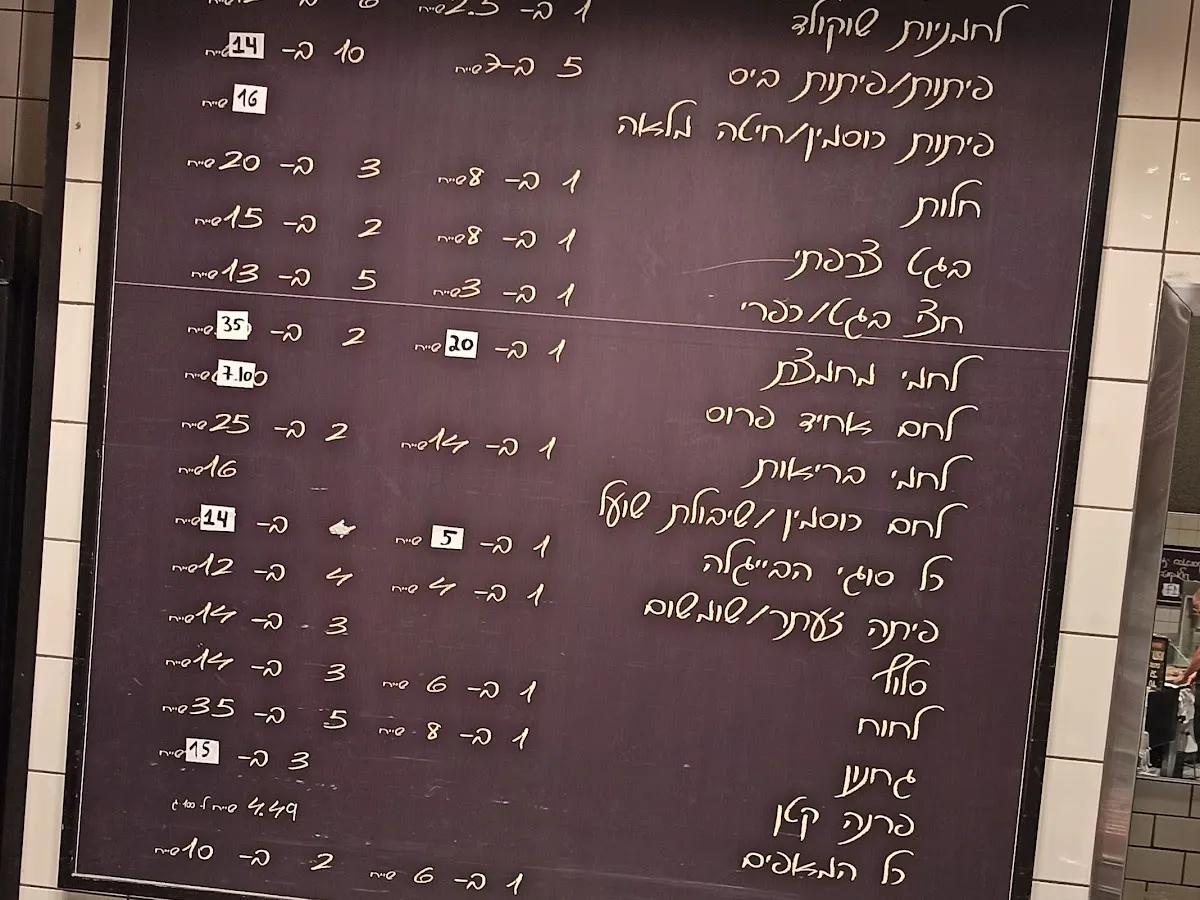 לחמניות שוקולד 1 ב- 2.5 ש״ח
פיתות/פיתות ביס 5 ב-7 ש״ח 10 ב- 14 ש״ח
פיתות כוסמין/חיטה מלאה 16 ש״ח
חלות 1 ב- 8 ש״ח 3 ב- 20 ש״ח
בגט צרפתי 1 ב- 8 ש״ח 2 ב- 15 ש״ח
חצי בגט/כפרי 1 ב- 3 ש״ח 5 ב- 13 ש״ח
לחמי מחמצת 1 ב- 20 ש״ח 2 ב- 35 ש״ח
לחם אחיד פרוס 7.10 ש״ח
לחמי בריאות 1 ב- 14 ש״ח 2 ב- 25 ש״ח
לחם כוסמין/שיבולת שועל 16 ש״ח
כל סוגי הבייגלה 1 ב- 5 ש״ח ב- 14 ש״ח
פיתה זעתר/שומשום 1 ב- 4 ש״ח 4 ב- 12 ש״ח
סלוף 3 ב- 14 ש״ח
לחוח 1 ב- 6 ש״ח 3 ב- 14 ש״ח
ג׳חנון 1 ב- 8 ש״ח 5 ב- 35 ש״ח
פרנה קטן 3 ב- 15 ש״ח
כל המאפים 4.49 ש״ח ל 100 ג
1 ב- 6 ש״ח 2 ב- 10 ש״ח